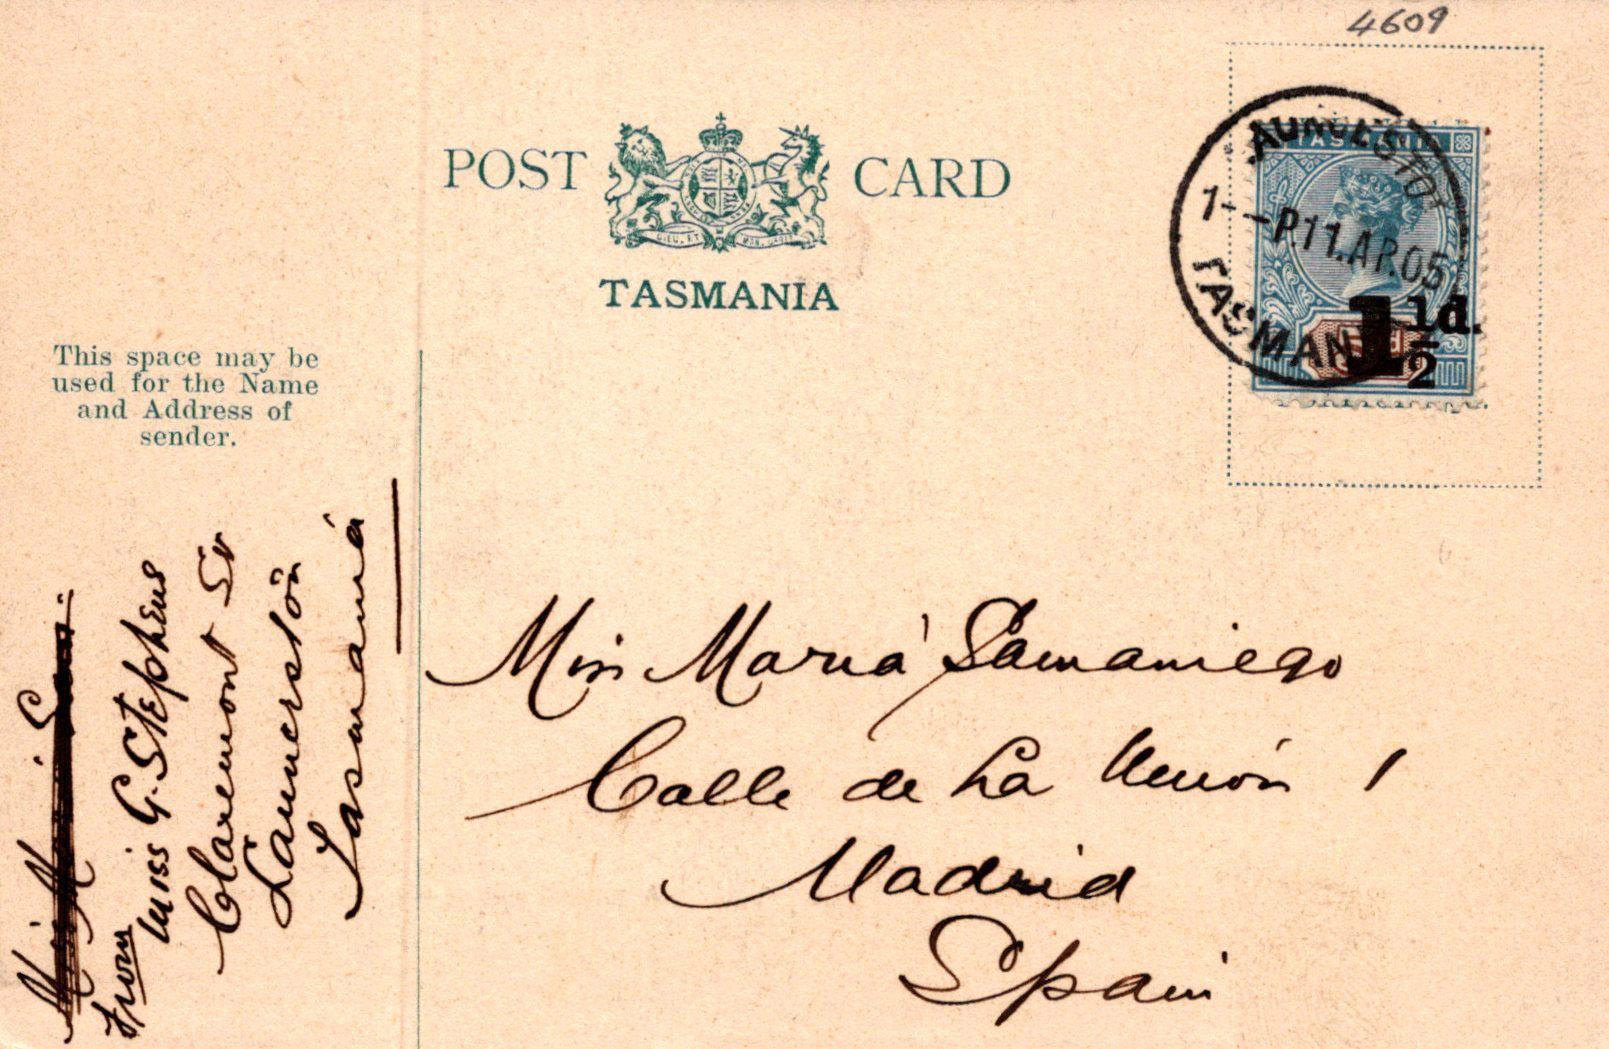 4609
POST CARD
DIEU ET MON DROIT
TASMANIA
TASMANIA
1½d.
LAUNCESTON
1--P.11.AP.05
TASMANIA
This space may be
used for the Name
and Address of
sender.
From
Miss G. Stephens
Claremont St
Launceston
Tasmania
Miss Maria Samaniego
Calle de La Unión 1
Madrid
Spain